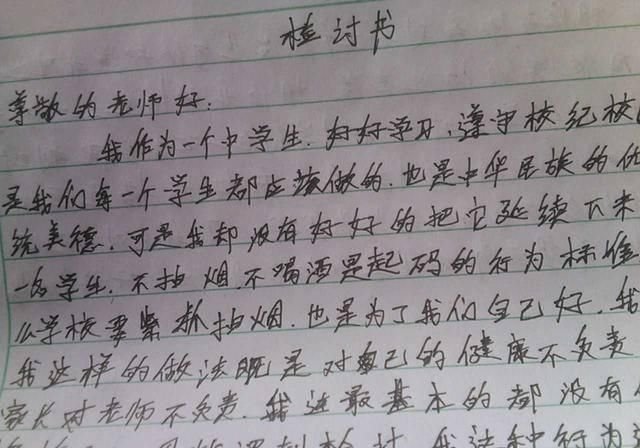 检讨书
尊敬的老师好:
我作为一个中学生.好好学习,遵守校纪校
是我们每一个学生都应该做的.也是中华民族的优
统美德.可是我却没有好好的把它延续下来
一名学生.不抽烟.不喝酒是起码的行为标准
么学校要紧抓抽烟.也是为了我们自己好.我
我这样的做法既是对自己的健康不负责
家长对老师不负责.我连最基本的都没有
我这种行为